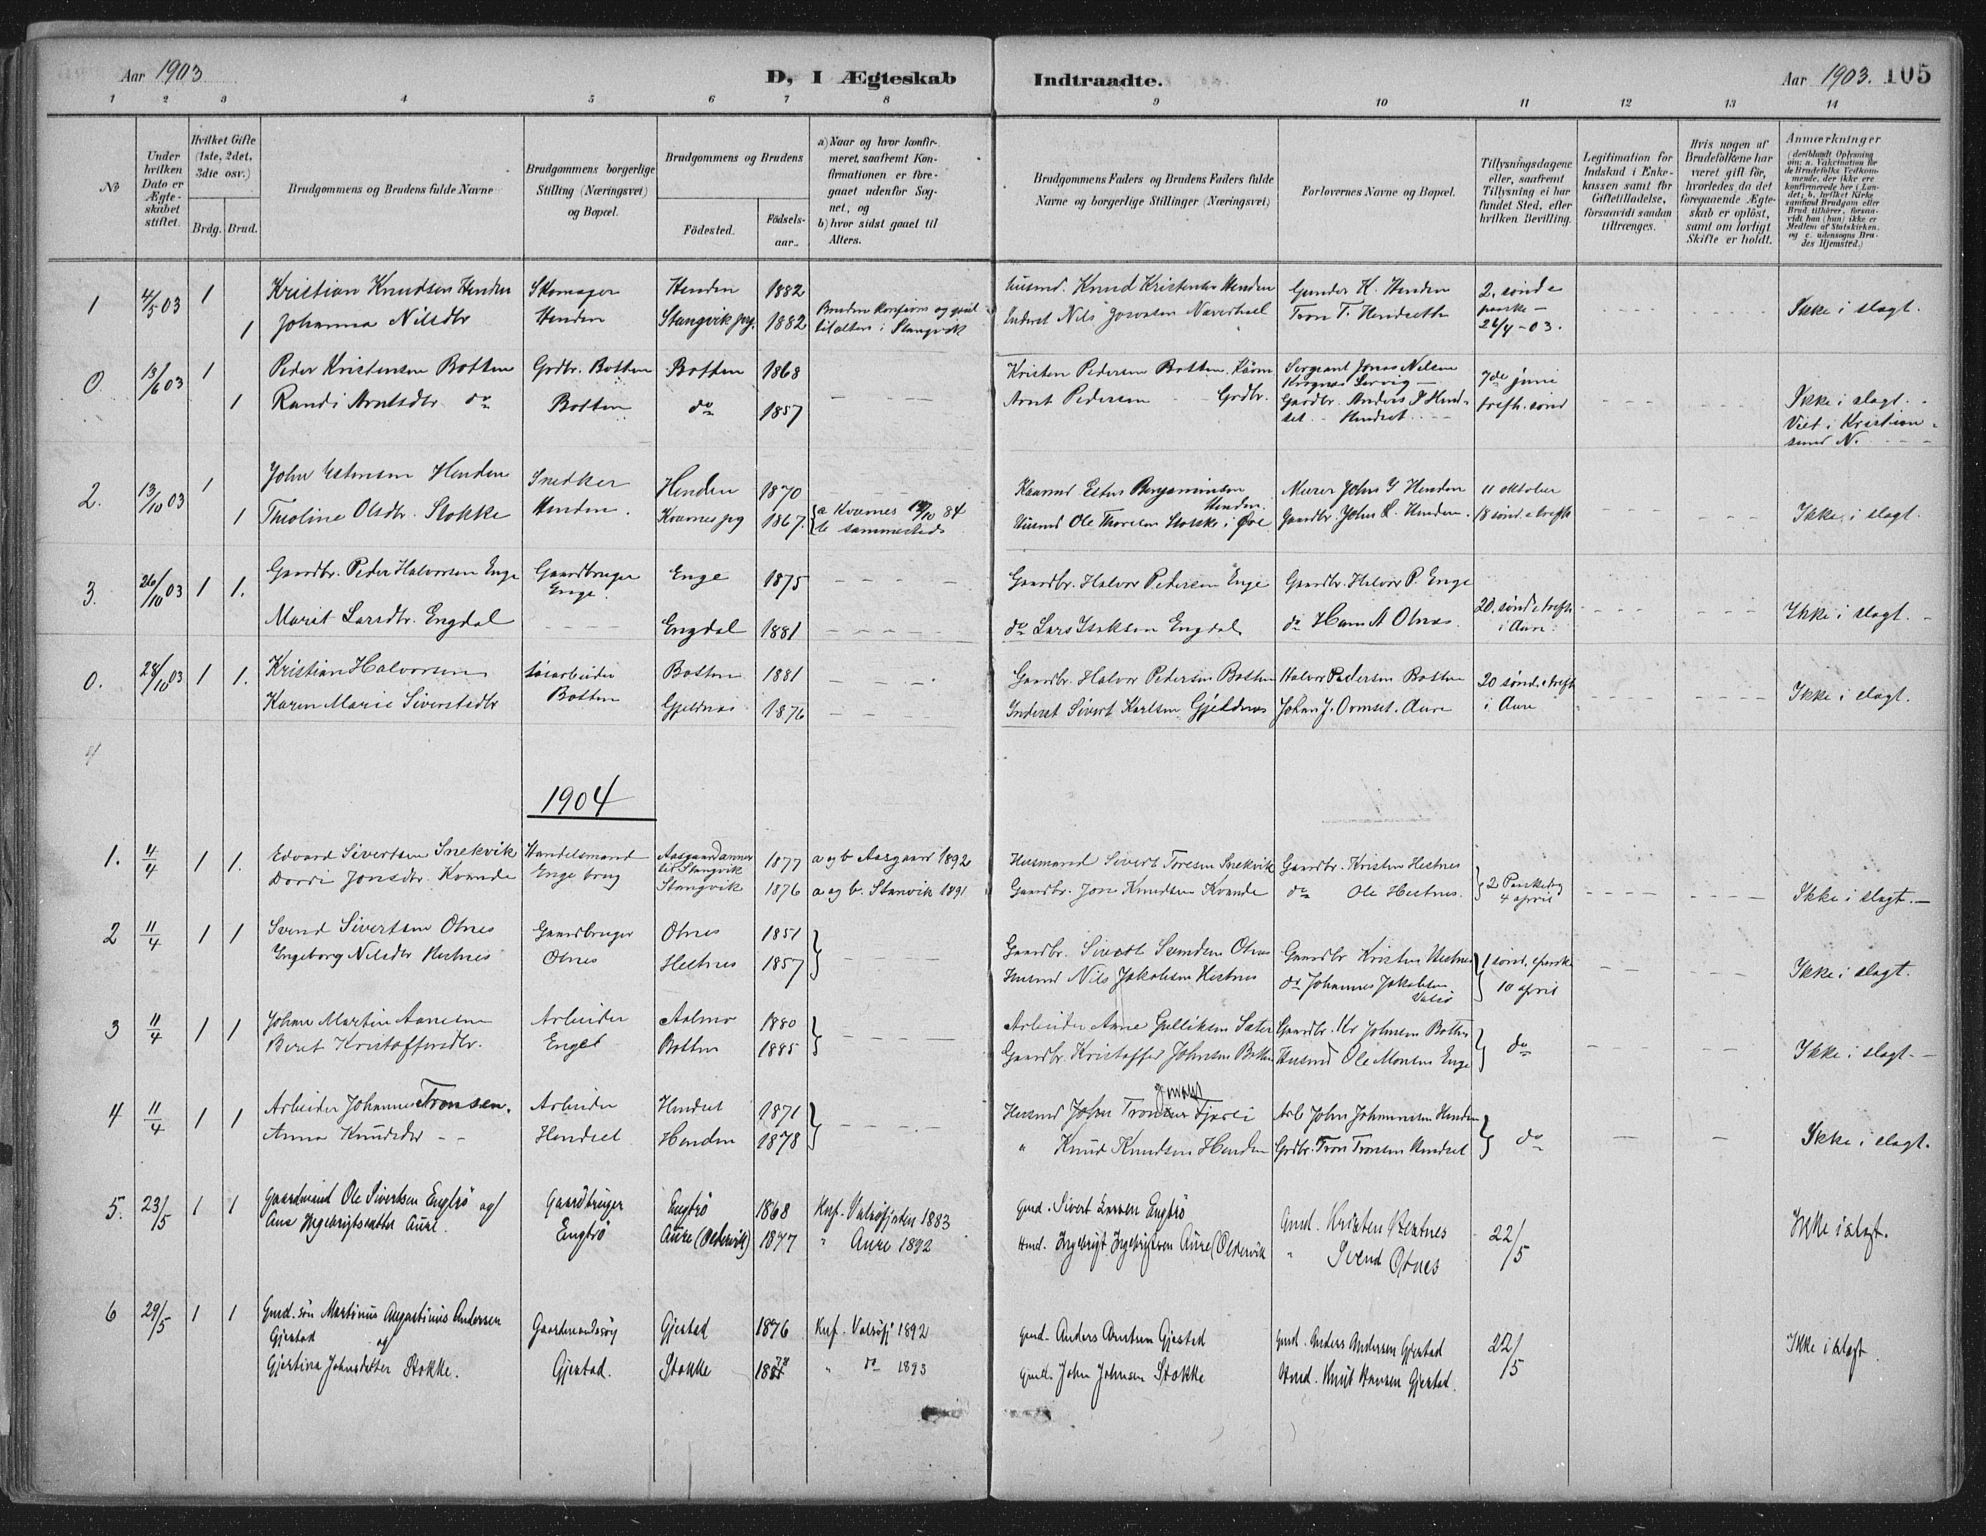 Aar 1903
D, I Ægteskab
Indtraadte.
Aar 1903. 105
1 2 3 4 5 6 7 8 9 10 11 12 13 14
No
Under hvilken Dato er Ægteskabet stiftet.
Hvilket Gifte (1ste, 2det, 3dte osv.)
Brdg. Brud.
Brudgommens og Brudens fulde Navne
Brudgommens borgerlige Stilling (Næringsvei) og Bopæl.
Brudgommens og Brudens
Födested.
Födselsaar.
a) Naar og hvor konfirmeret, saafremt Konfirmationen er foregaaet udenfor Sognet, og
b) hvor sidst gaaet til Alters.
Brudgommens Faders og Brudens Faders fulde Navne og borgerlige Stillinger (Næringsvei)
Forlovernes Navne og Bopæl.
Tillysningsdagene eller, saafremt Tillysning ei har fundet Sted, efter hvilken Bevilling.
Legitimation for Indskud i Enkekassen samt for Giftetilladelse, forsaavidt saadan tiltrænges.
Hvis nogen af Brudefolkene har været gift för, hvorledes da det foregaaende Ægteskab er oplöst, samt om lovligt Skifte er holdt.
Anmærkninger
(deriblandt Oplysning om: a. Vakcination for de Brudefolks Vedkommende, der ikke ere konfirmerede her i Landet; b. hvilket Kirkesamfund Brudgom eller Brud tilhörer, forsaavidt han (hun) ikke er Medlem af Statskirken. og c. udensogns Brudes Hjemsted.)
1 4/5 03 1 Kristian Knudsen Henden Skomager Henden 1882 Husmd. Knud Kristensen Henden Gunder K. Henden 2. sönd e
1 Johanna Nilsdtr Henden Stangvik prg. 1882 Bruden konfirm og gaat til alters i Stangvik Inderst Nils Tron T. Hendseth paaske 26/4-03. Ikke i slægt.
0. 13/6 03 1 Peder Kristensen Botten Grdbr. Botten Botten 1868 Kristen Pedersen Botten Sergeant Jonas Nilsen 7de juni
1 Randi Arntsdtr. do Botten do 1857 Arnt Pedersen Grdbr. Gaardbr. Anders P Hendset trefh. sönd Ikke i slægt.
Viet i Kristiansund N.
2. 13/10 03 1 John Estensen Henden Snedker Henden 1870 Esten Benjaminsen Henden Murer John Henden 11 oktober
1 Theoline Olsdtr. Stokke Henden. Kvarnes pg 1867 a Kvarnes 84 b sammesteds Husmd Ole Thoresen Stokke i Öre Gaardbr. John L. Henden. 18 sönd e trefh Ikke i slægt.
3. 26/10 03 1 1. Gaardbr. Peder Halvorsen Enge Gaardbruger Enge. Enge 1875 Gaardbr. Halvor Pedersen Enge Gaardbr. Halvor P. Enge
Marit Larsdtr. Engdal Engdal 1881 do Lars Isaksen Engdal do Hans A Otnes. 20. sönd e trefh i Aure. Ikke i slægt.
0. 28/10 03 1 1. Kristian Halvorsen Söarbeider Botten 1881 Gaardbr. Halvor Pedersen Botten Halvor Pedersen Botten 20 sönd. e trefh
Karen Marie Siverstsdtr Botten Gjeldnes 1876 Inderst Sivert Karlsen Gjeldnes Johan J. Ormset. Aure i Aure Ikke i slægt.
4
1904
1. 4/4 1 1. Edvard Sivertsen Snekvik Handelsmand Aasgaard anner til Stangvik 1877 a og b Aasgaard 1892 Husmand Sivert Toresen Snekvik Gaardbr. Kristen Hestnes
Dordi Jonsdtr. Kvande Enge brug Stangvik 1876 a og b. Stanvik 1891 Gaardbr. Jon Knudsen Kvande do Ole Hestnes. 2 Paaskedag 4 april Ikke i slægt.
2 11/4 1 1 Svend Sivertsen Otnes Gaardbruger Otnes 1851 Gaardbr. Sivert Svendsen Otnes Gaardbr Kristen Hestnes 1 sönd. e paaske
Ingeborg Nilsdtr Hestnes Otnes Hestnes 1857 Husmd Nils Jakobsen Hestnes do Johannes Jakobsen Valsö 10 april Ikke i slægt.
3 11/4 1 1 Johan Martin Aanesen Arbeider Aalmo 1880 Arbeider Aane Gulliksen Sæter Gaardbr. Johnsen Botten
Beret Kristoffersdtr. Enget Botten 1885 Gaardbr. Kristoffer Johnsen Botten Husmd Ole Monsen Enge do Ikke i slægt.
4 11/4 1 1 Arbeider Johannes Tronsen. Arbeider Hendset 1871 Husmd John Tronsen Fjorli Arb John Johannesen Henden
Anna Knudsdtr Hendset Henden 1878 " Knud Knudsen Henden Grdbr. Tron Tronsen Hendset do Ikke i slægt.
5. 23/5 1 1 Gaardmand Ole Sivertsen Engbrö og Gaardbruger Engbrö 1868 Knf. Valsöfjorden 1883 Gmd. Sivert Larsen Engbrö Gmd. Kristen Hestnes
Ane Ingebrigtsdatter Aure. Engbrö Aure (Oldervik) 1877 " Aure 1892 Hmd. Ingebrigt Ingebrigtsen Aure (Oldervik " Svend Otnes 22/5 Ikke i slægt.
6 29/5 1 1 Gmd. sön Martinus Augustinus Andersen Gjerstad og Gaardmandssön Gjestad 1876 Knf. Valsöfj. 1892 Gmd. Anders Arntsen Gjestad Gmd. Anders Andersen Gjestad 22/5 Ikke i slægt.
Gjertina Johnsdatter Stokke. Gjestad. Stokke 1878 " do 1893 Gmd. John Johnsen Stokke Hmd. Knut Hansen Gjestad.